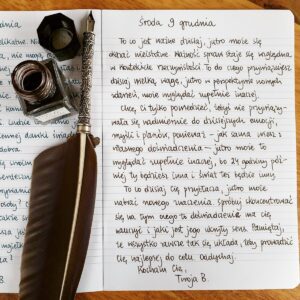 Środa 9 grudnia
To co jest ważne dzisiaj, jutro może się
okazać nieistotne. Ważność spraw staje się względna
w kontekście rzeczywistości. To do czego przywiązujesz
dzisiaj wielką wagę, jutro w perspektywie nowych
zdarzeń, może wyglądać zupełnie inaczej.
Chcę Ci tylko powiedzieć, żebyś nie przywiązy-
wała się nadmiernie do dzisiejszych emocji,
myśli i planów, ponieważ – jak sama wiesz z
własnego doświadczenia – jutro może to
wyglądać zupełnie inaczej, bo 24 godziny póź-
niej, ty będziesz inna i świat też będzie inny.
To co dzisiaj Cię przytłacza, jutro może
nabrać nowego znaczenia. Spróbuj skoncentrować
się na tym czego to doświadczenie ma cię
nauczyć i jaki jest jego ukryty sens. Pamiętaj,
że wszystko zawsze tak się układa, żeby prowadzić
Cię najlepiej do celu. Oddychaj.
Kocham Cię,
Twoja B.